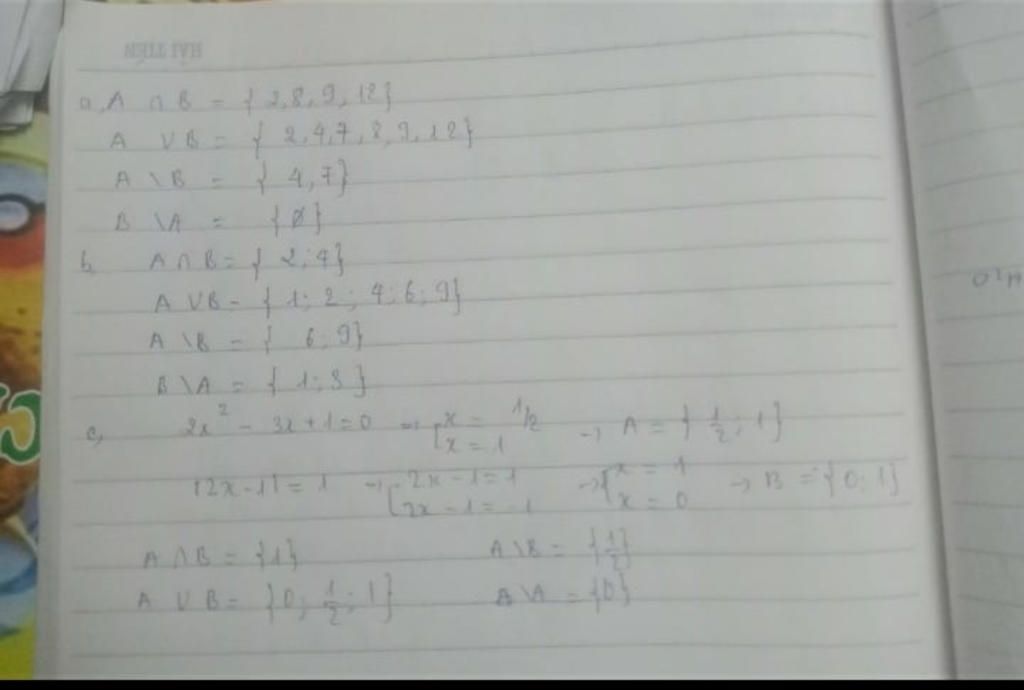 HẢI TIẾN
a, A ∩ B = { 2,8,9,12}
A ∪ B = { 2,4,7,8,9,12}
A \ B = { 4,7}
B \ A = {∅}
b, A ∩ B = { 2;4}
A ∪ B = { 1; 2; 4; 6; 9}
A \ B = { 6; 9}
B \ A = { 1; 3}
c, 2x² - 3x + 1 = 0 → [x = 1/2 [x = 1 → A = { 1/2 ; 1}
|2x - 1| = 1 → [2x - 1 = 1 [2x - 1 = -1 → [x = 1 [x = 0 → B = {0; 1}
A ∩ B = {1} A \ B = {1/2}
A ∪ B = {0; 1/2; 1} A \ A = {0}